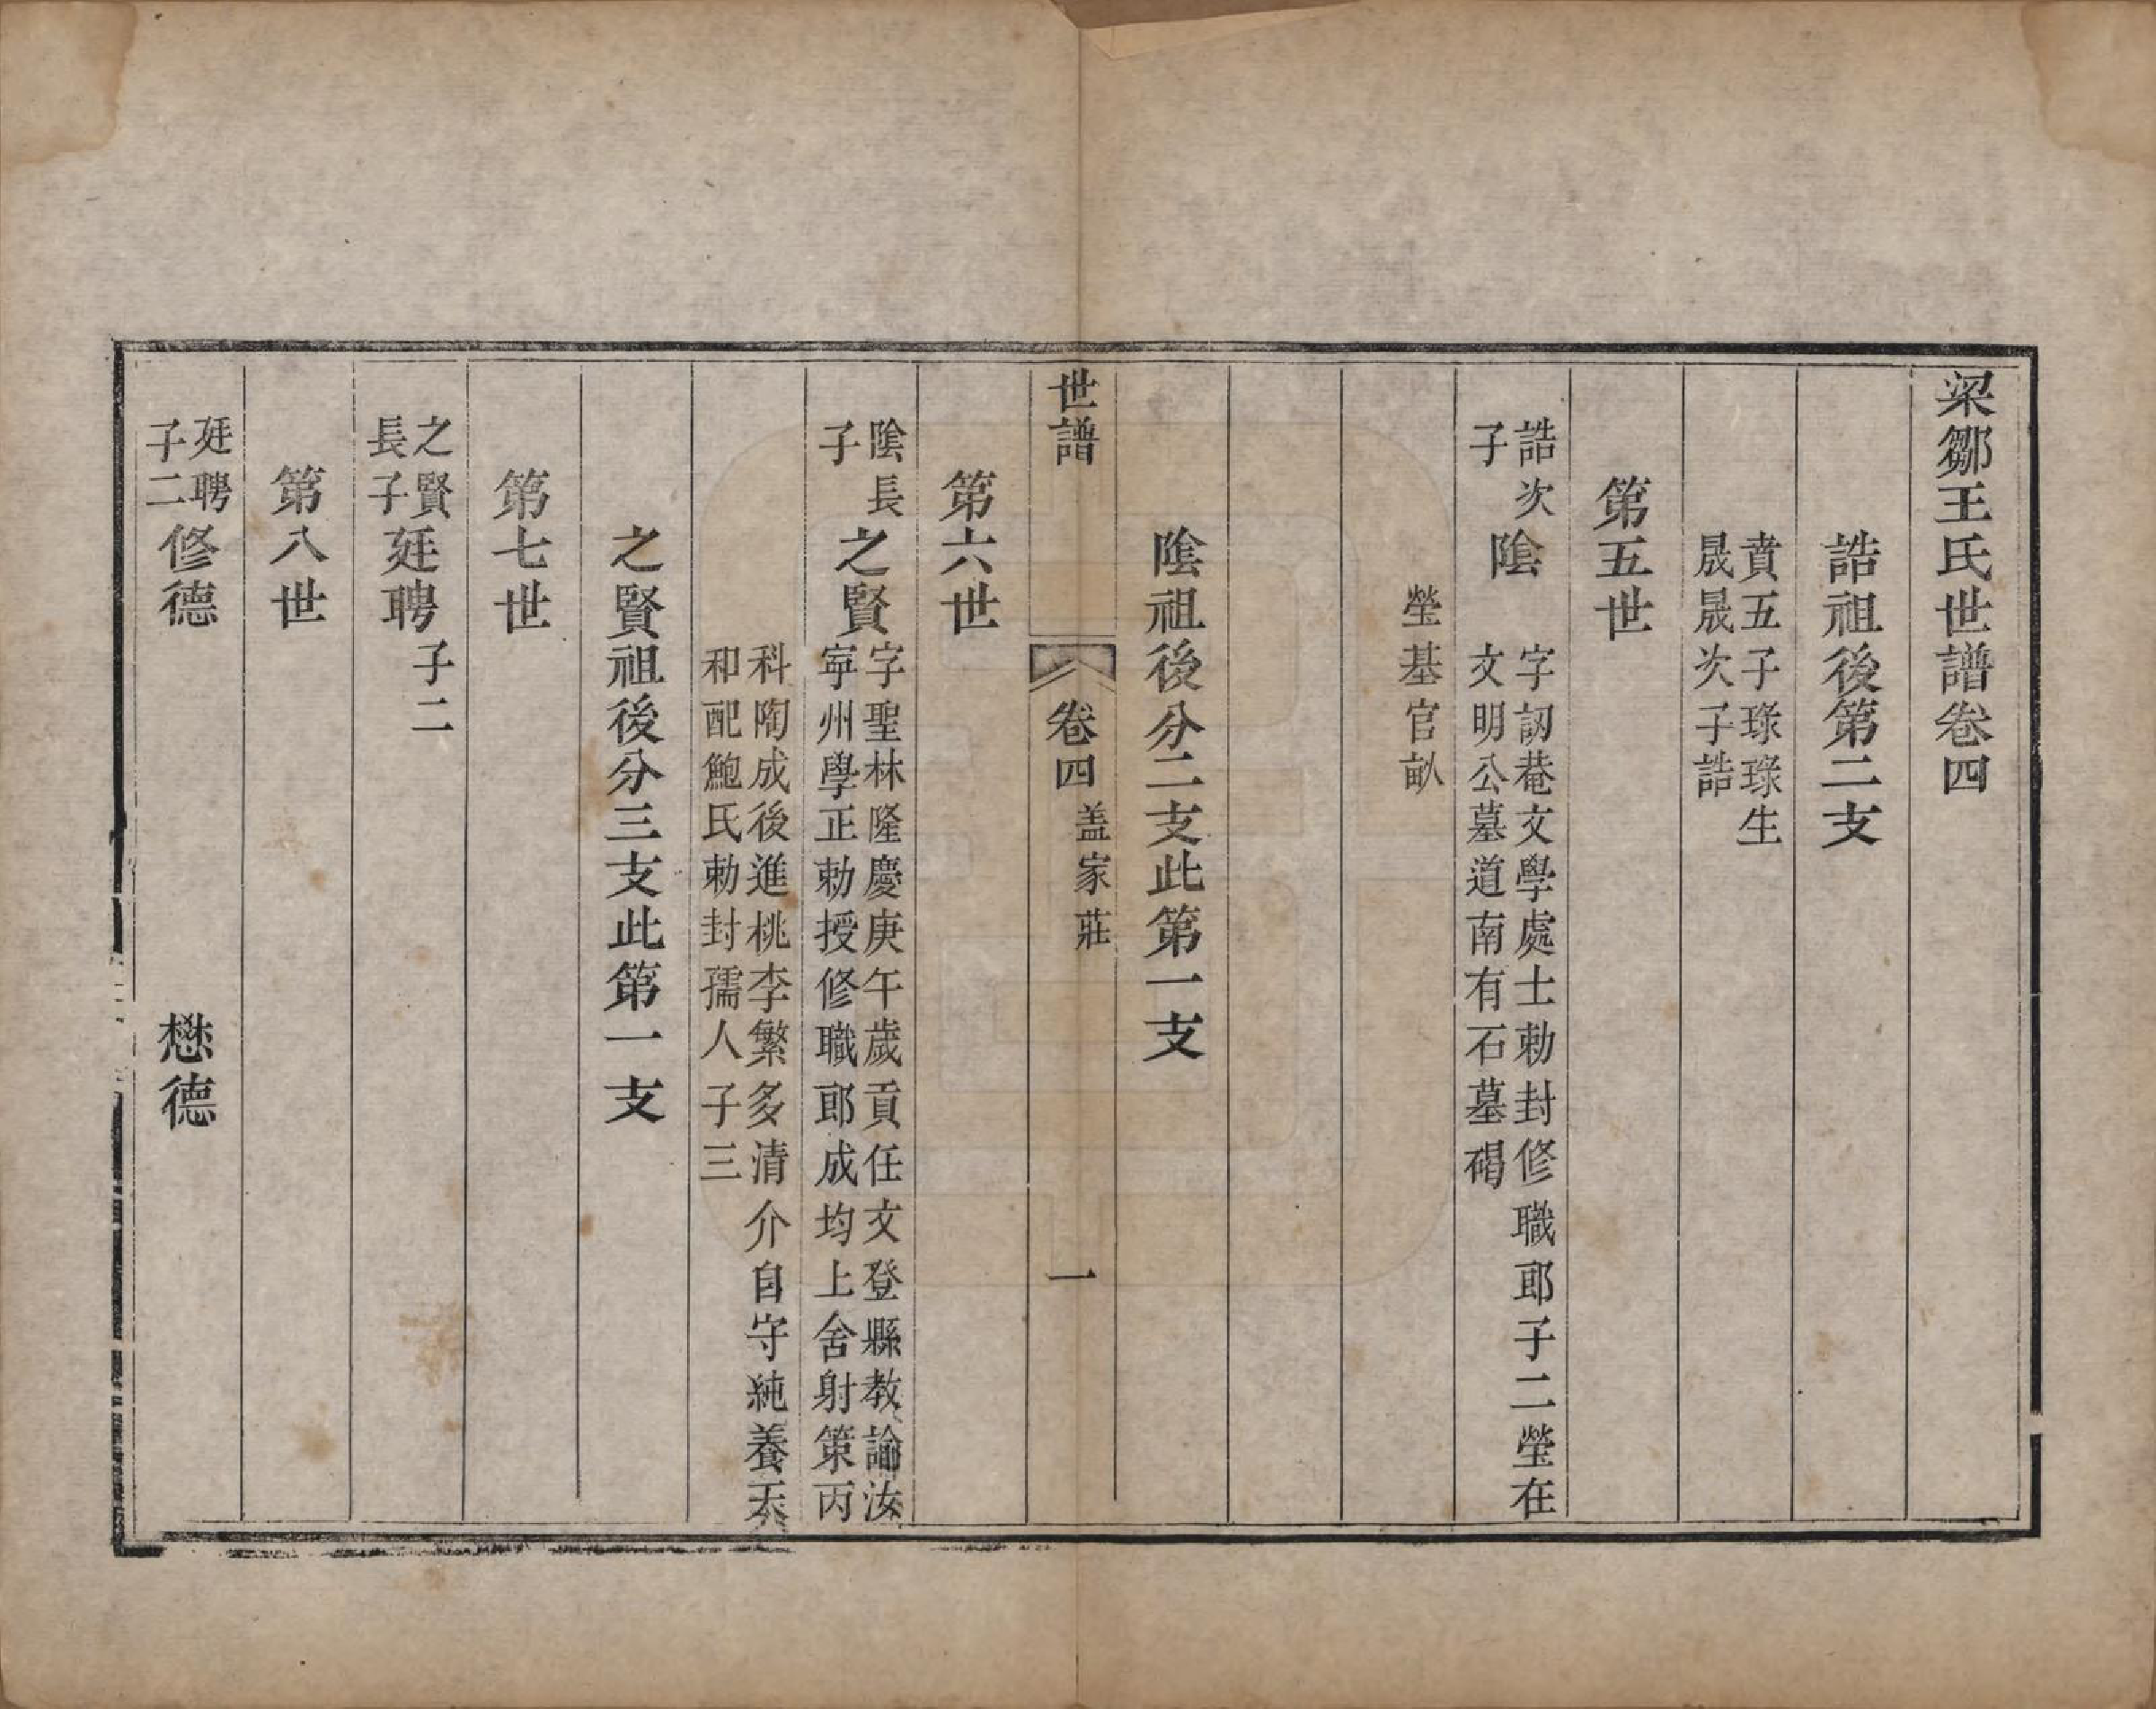 梁鄒王氏世譜卷四
誥祖後第二支
賁五子琭琭生
晟晟次子誥
第五世
誥次
子
陰
字訒菴文學處士勅封修職郎子二塋在
文明公墓道南有石墓碣
塋基官畝
陰祖後分二支此第一支
世譜
卷四
盖家莊
一
第六世
陰長
子
之賢
字聖林隆慶庚午歲貢任文登縣教諭汝
寕州學正勅授修職郎成均上舍射策丙
科陶成後進桃李繁多清介自守純養天
和配鮑氏勅封孺人子三
之賢祖後分三支此第一支
第七世
之賢
長子
廷聘
子二
第八世
廷聘
子二
修德
懋德